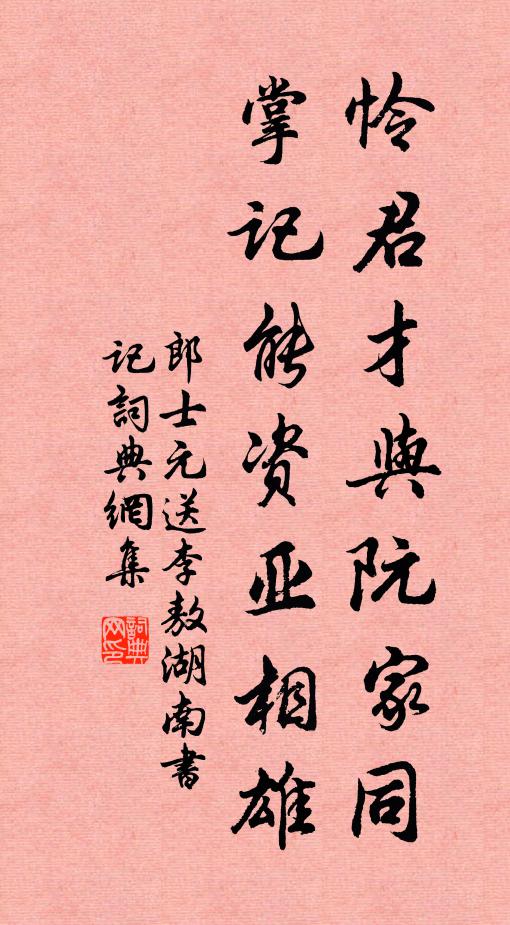 怜君才與阮家同
掌记能资亚相雄
郎士元送李敖湖南書
记詞典網集
詞典网印